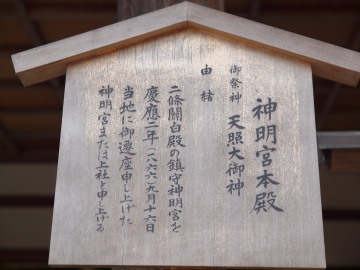 神明宮本殿
御祭神 天照大御神
由緒
二條關白殿の鎮守神明宮を
慶應二年(一八六六)九月十六日
当地に御遷座申し上げた
神明宮または上社を申し上げる